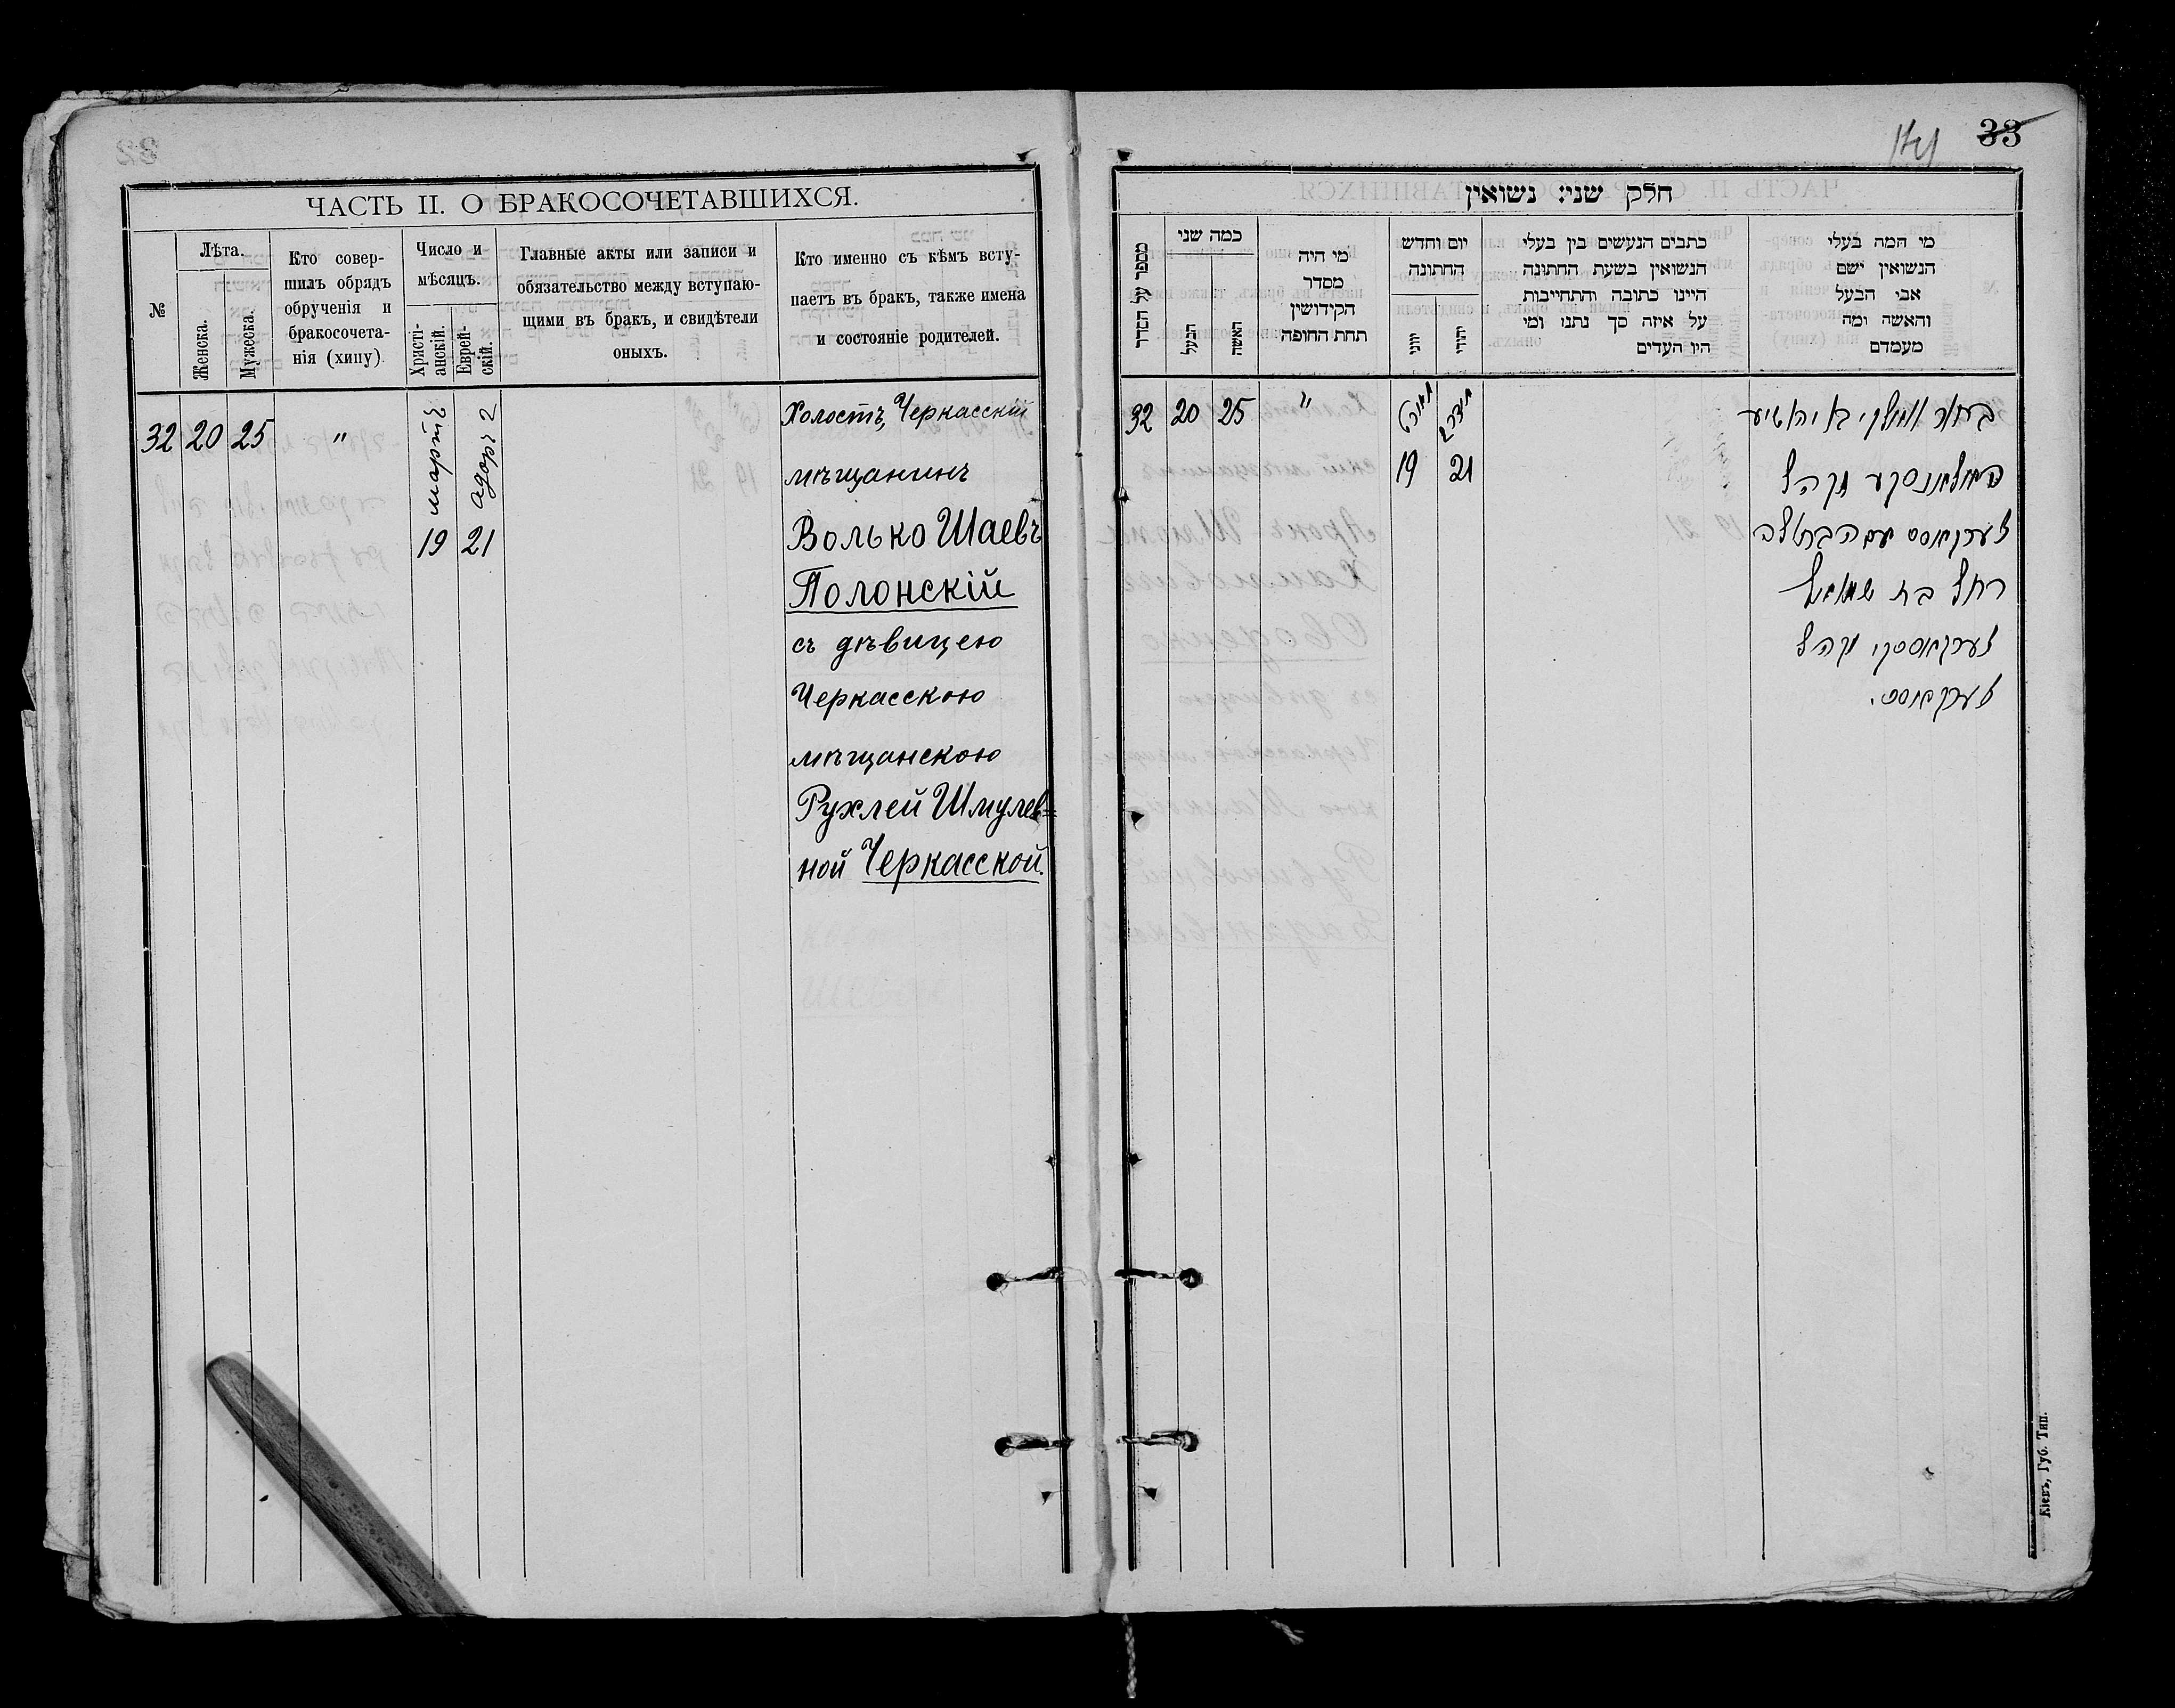 ЧАСТЬ II. О БРАКОСОЧЕТАВШИХСЯ.
№
Лѣта.
Женска.
Мужеска.
Кто совер-
шилъ обрядъ
обрученія и
бракосочета-
нія (хипу).
Число и
мѣсяцъ.
Христі-
анскій.
Еврей-
скій.
Главные акты или записи и
обязательство между вступаю-
щими въ бракъ, и свидѣтели
оныхъ.
Кто именно съ кѣмъ всту-
паетъ въ бракъ, также имена
и состояніе родителей.
32 20 25 "
мартъ 19
адоръ 2 21
Холостъ, Черкасскій
мѣщанинъ
Волько Шаевъ
Полонскій
съ дѣвицею
Черкасскою
мѣщанскою
Рухлей Шмулев=
ной Черкасской.
33
חלק שני: נשואין
מספר על הסדר
כמה שני
הבעל
האשה
מי היה
מסדר
הקידושין
תחת החופה
יום וחדש
החתונה
יוני
יהודי
כתבים הנעשים בין בעלי
הנשואין בשעת החתונה
היינו כתובה והתחייבות
על איזה סך נתנו ומי
היו העדים
מי המה בעלי
הנשואין ישם
אבי הבעל
והאשה ומה
מעמדם
32 20 25 "
מארט 19
אדר 2 21
בחור וואלקי ב יהאשיע
פאלאנסקע מקהל
טערקאסס עם הבתולה
רחל בת שמואל
טערקאסקי מקהל
טערקאסס.
Кіевъ, Губ. Тип.